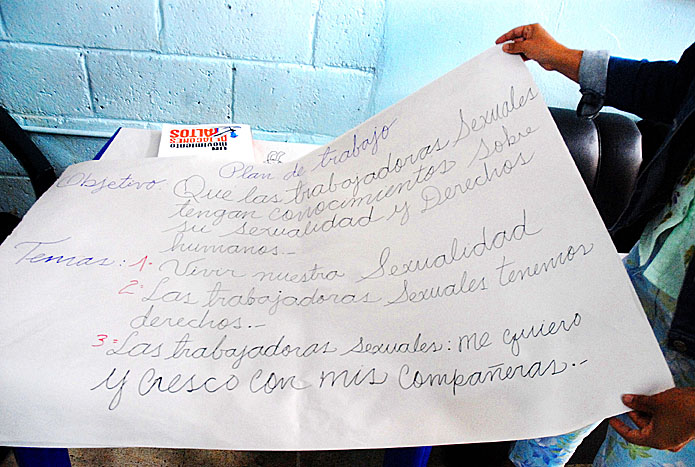 UN
movimiento
DE TACONES
ALTOS
Plan de trabajo
Objetivo: Que las trabajadoras Sexuales
tengan conocimientos sobre
su sexualidad y Derechos
humanos.-
Temas: 1- Vivir nuestra Sexualidad
2= Las trabajadoras Sexuales tenemos
derechos.-
3= Las trabajadoras sexuales: me quiero
y cresco con mis compañeras.-